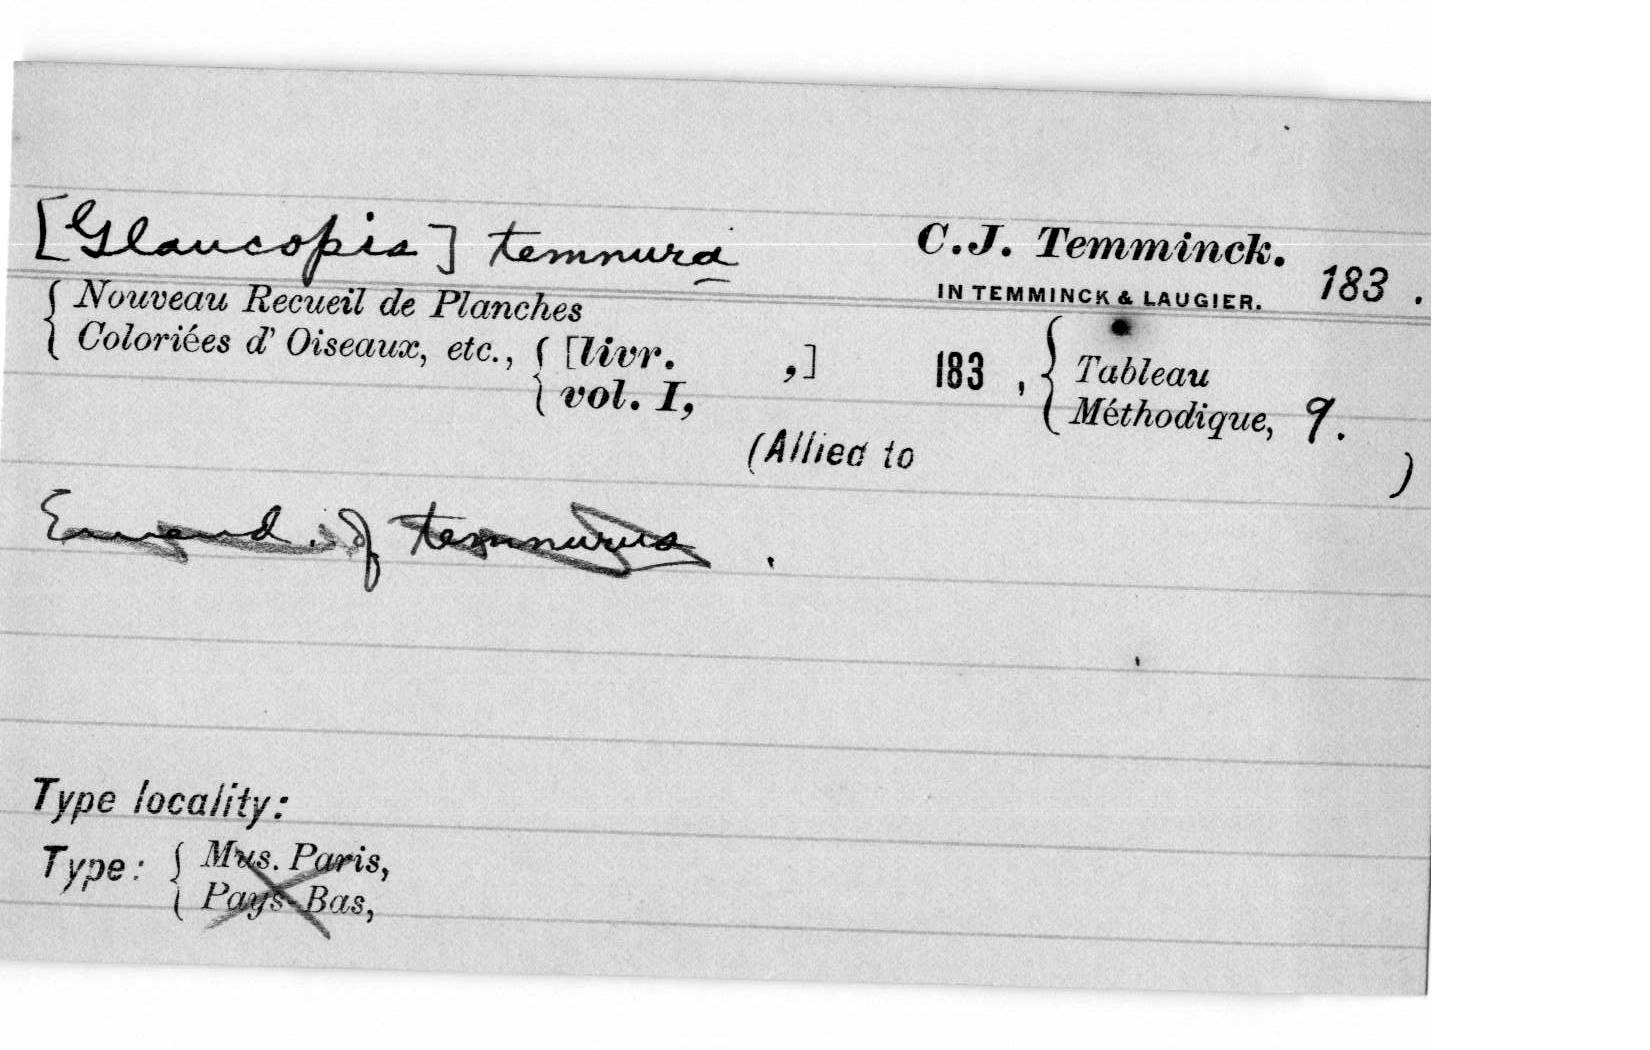 [Glaucopis] temnura C.J. Temminck. 183 .
IN TEMMINCK & LAUGIER.
{ Nouveau Recueil de Planches
Coloriées d' Oiseaux, etc., { [livr. ,] 183 , { Tableau
vol. I, Méthodique, 9.
(Allied to )
Emend. of temnurus .
Type locality:
Type: { Mus. Paris,
Pays-Bas,